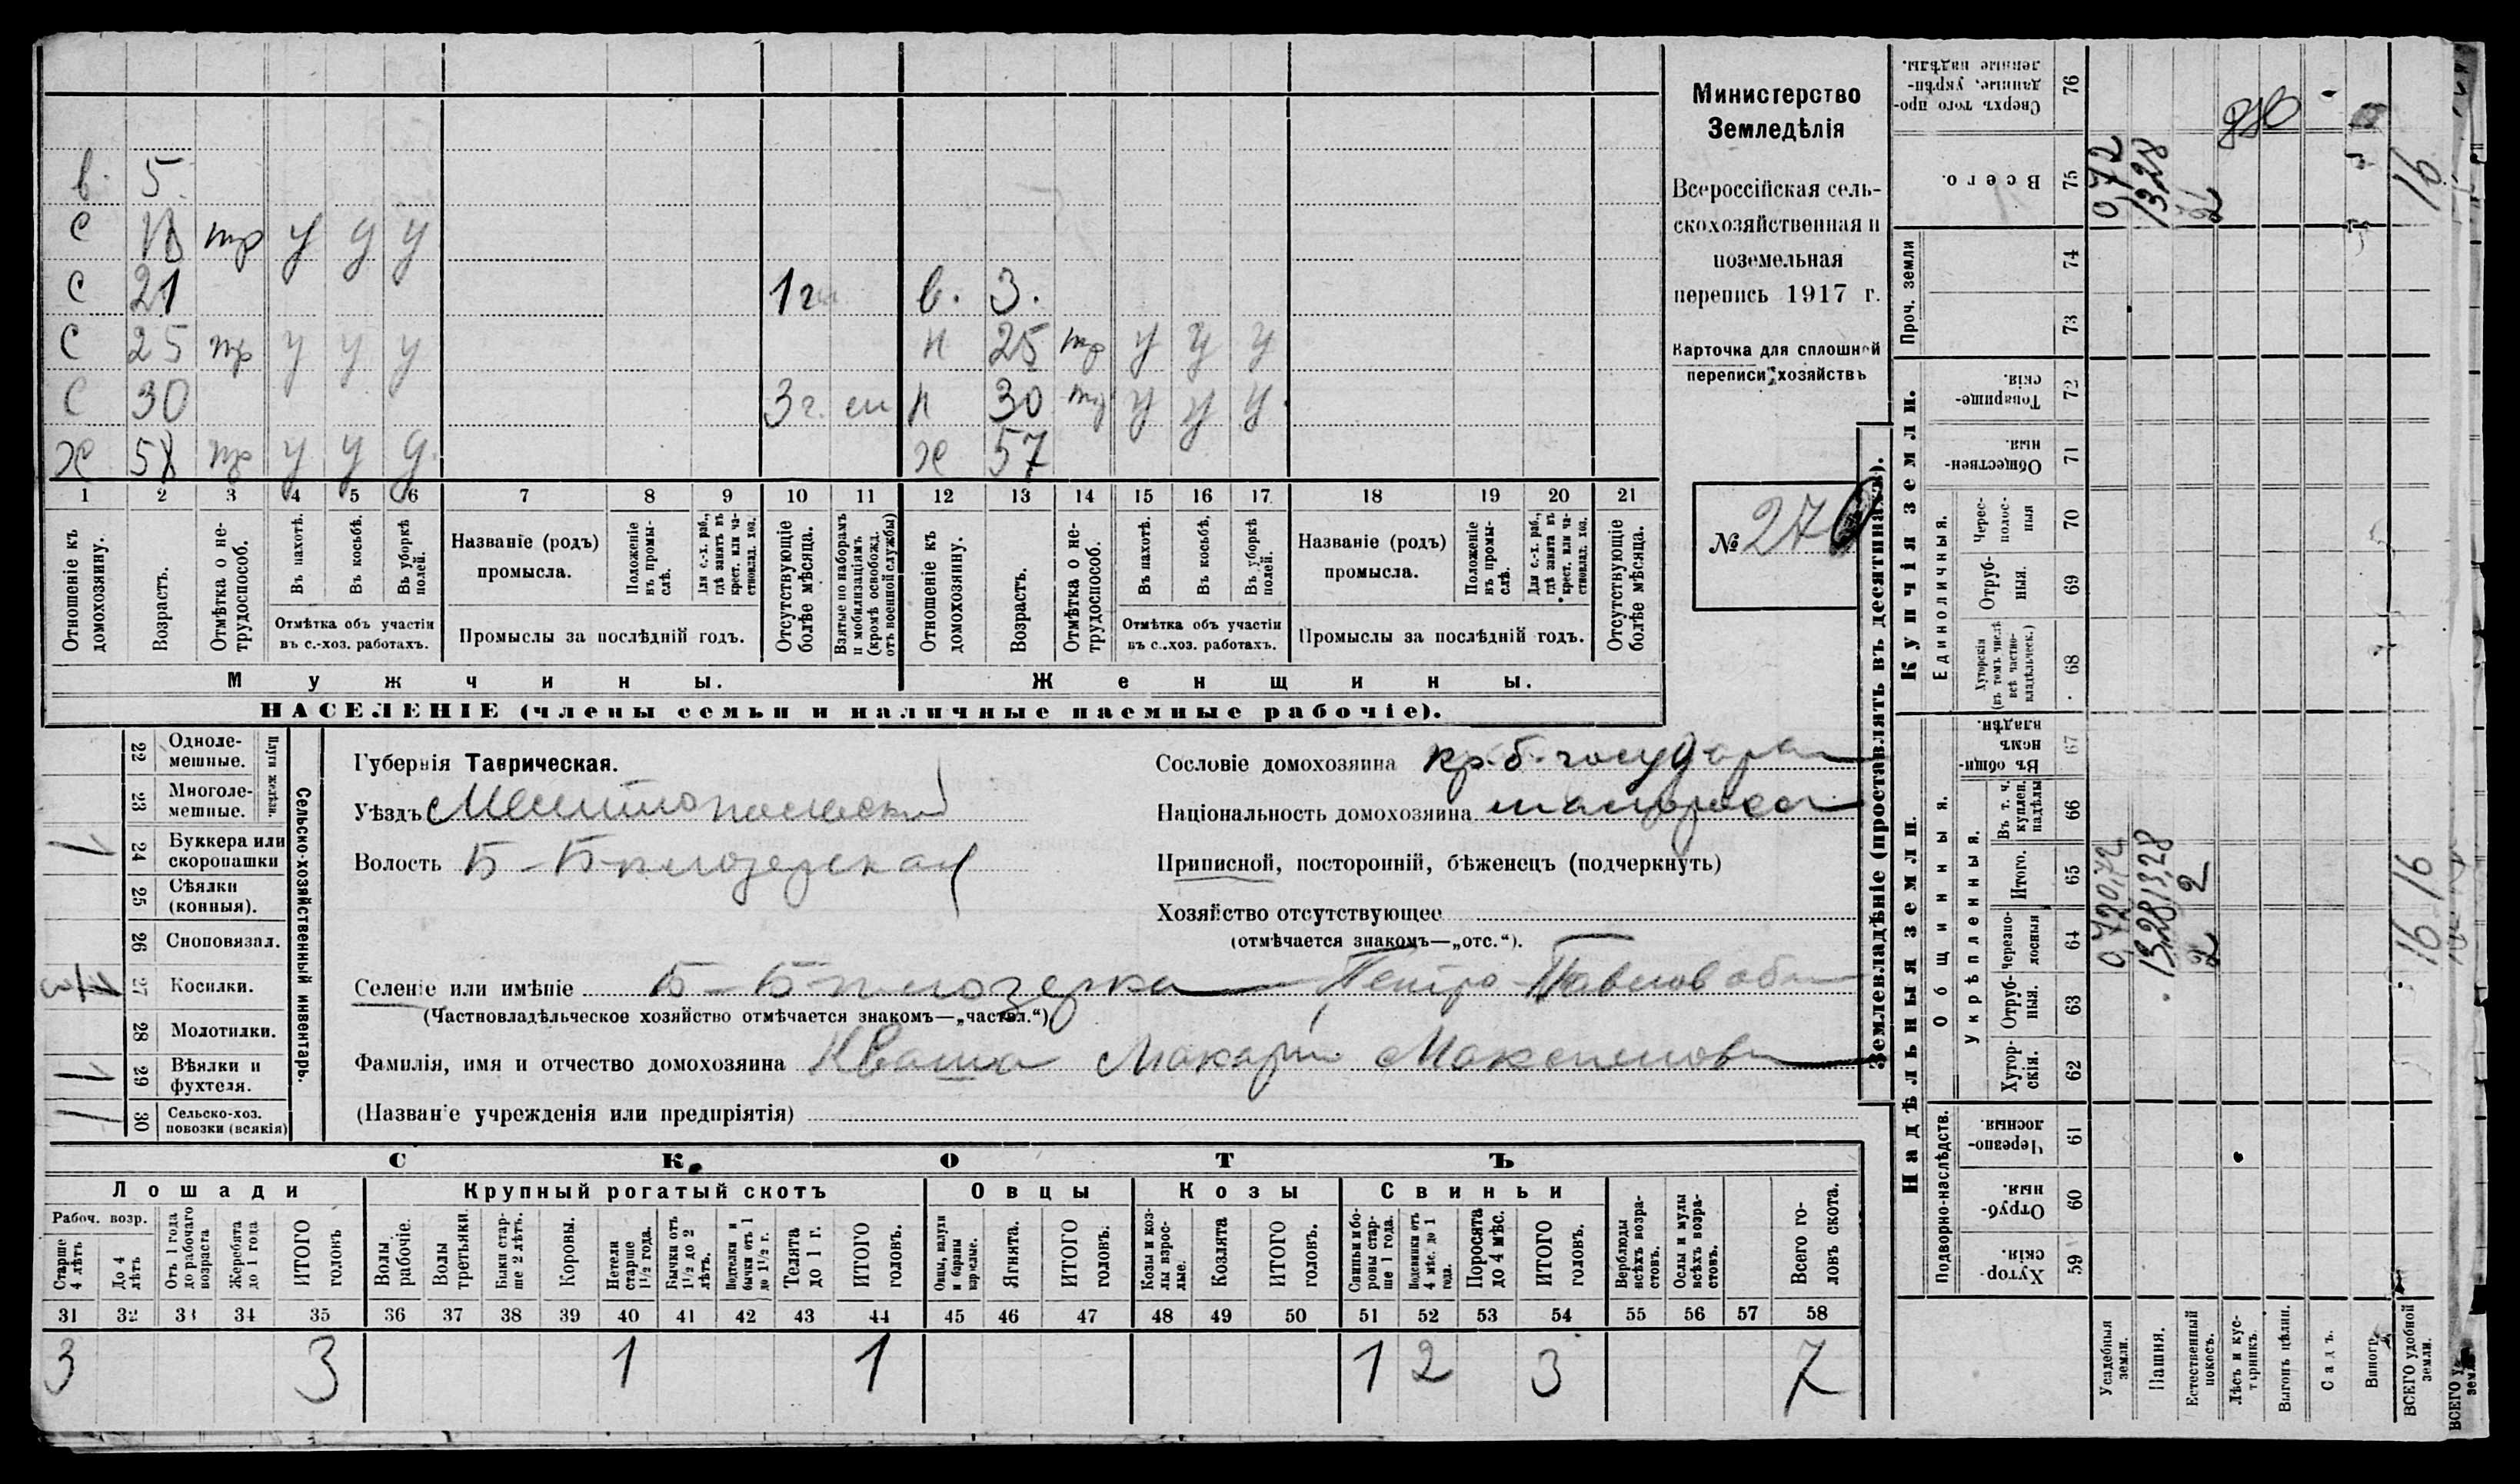 Министерство
Земледѣлія
Всероссійская сель-
скохозяйственная и
поземельная
перепись 1917 г.
Карточка для сплошной
переписи хозяйствъ
№ 270
в. 5.
с 18 тр у у у
с 21 1 г в. 3.
с 25 тр у у у н 25 тр у у у
с 30 3 г. н 30 тр у у у
х 58 тр у у у х 57
1 2 3 4 5 6 7 8 9 10 11 12 13 14 15 16 17 18 19 20 21
Отношеніе къ домохозяину.
Возрастъ.
Отмѣтка о не-трудоспособ.
Въ пахотѣ.
Въ косьбѣ.
Въ уборкѣ полей.
Отмѣтка объ участіи
въ с.-хоз. работахъ.
Названіе (родъ)
промысла.
Положеніе въ промы-слѣ.
Для с.-х. раб., гдѣ занятъ въ крест. или ча-стновлад. хоз.
Промыслы за послѣдній годъ.
Отсутствующіе болѣе мѣсяца.
Взятые по наборамъ и мобилизаціямъ (кромѣ освобожд. отъ военной службы)
Отношеніе къ домохозяину.
Возрастъ.
Отмѣтка о не-трудоспособ.
Въ пахотѣ.
Въ косьбѣ.
Въ уборкѣ полей.
Отмѣтка объ участіи
въ с.-хоз. работахъ.
Названіе (родъ)
промысла.
Положеніе въ промы-слѣ.
Для с.-х. раб., гдѣ занята въ крест. или ча-стновлад. хоз.
Промыслы за послѣдній годъ.
Отсутствующіе болѣе мѣсяца.
Мужчины. Женщины.
НАСЕЛЕНІЕ (члены семьи и наличные наемные рабочіе).
Сельско-хозяйственный инвентарь.
Плуги желѣзн.
22 Однолемешные.
23 Многолемешные.
24 Буккера или скоропашки 1
25 Сѣялки (конныя).
26 Сноповязал.
27 Косилки.
28 Молотилки.
29 Вѣялки и фухтеля. 1
30 Сельско-хоз. повозки (всякія) 1
Губернія Таврическая.
Уѣздъ Мелитопольский
Волость Б-Бѣлозерская
Сословіе домохозяина кр. б. государ
Національность домохозяина малоросс
Приписной, посторонній, бѣженецъ (подчеркнуть)
Хозяйство отсутствующее
(отмѣчается знакомъ—„отс.“).
Селеніе или имѣніе Б-Бѣлозерка Петро-Павлов
(Частновладѣльческое хозяйство отмѣчается знакомъ—„частвл.“).
Фамилія, имя и отчество домохозяина Кваша Макарій Максимов
(Названіе учрежденія или предпріятія)
СКОТЪ
Лошади Крупный рогатый скотъ Овцы Козы Свиньи
Рабоч. возр.
Старше 4 лѣтъ
До 4 лѣтъ
Отъ 1 года до рабочаго возраста
Жеребята до 1 года
ИТОГО головъ
Волы рабочіе.
Волы третьяки.
Быки стар-ше 2 лѣтъ.
Коровы.
Нетели старше 1½ года.
Бычки отъ 1½ до 2 лѣтъ.
Подтелки и бычки отъ 1 до 1½ г.
Телята до 1 г.
ИТОГО головъ.
Овцы, валухи и бараны взрослые.
Ягнята.
ИТОГО головъ.
Козы и коз-лы взрос-лые.
Козлята
ИТОГО головъ.
Свиньи и бо-ровы стар-ше 1 года.
Подсвинки отъ 4 мѣс. до 1 года.
Поросята до 4 мѣс.
ИТОГО головъ.
Верблюды всѣхъ возра-стовъ.
Ослы и мулы всѣхъ возра-стовъ.
Всего го-ловъ скота.
31 32 33 34 35 36 37 38 39 40 41 42 43 44 45 46 47 48 49 50 51 52 53 54 55 56 57 58
3 3 1 1 1 2 3 7
Землевладѣніе (проставлять въ десятинахъ).
Надѣльныя земли. Купчія земли. Проч. земли
Подворно-наслѣдств.
Общинныя.
Укрѣпленныя.
Единоличныя.
59 Хутор-скія.
60 Отруб-ныя.
61 Черезпо-лосныя.
62 Хутор-скія.
63 Отруб-ныя.
64 Черезпо-лосныя
65 Итого.
66 Въ т. ч. куплен. надѣлы
67 Въ общин-номъ владѣн.
68 Хуторскія (въ томъ числѣ всѣ частно-владѣльческ.)
69 Отруб-ныя.
70 Черес-полос-ныя
71 Обществен-ныя.
72 Товарище-скія.
73
74
75 Всего.
76 Сверхъ того про-данные, укрѣп-ленные надѣлы.
Усадебныя земли. 0,72 0,72 0,72
Пашня. 13,28 13,28 13,28
Естественный покосъ. 2 2 2
Лѣсъ и кус-тарникъ.
Выгонъ цѣлин.
Садъ.
Виногр.
ВСЕГО удобной земли. 16 16 16